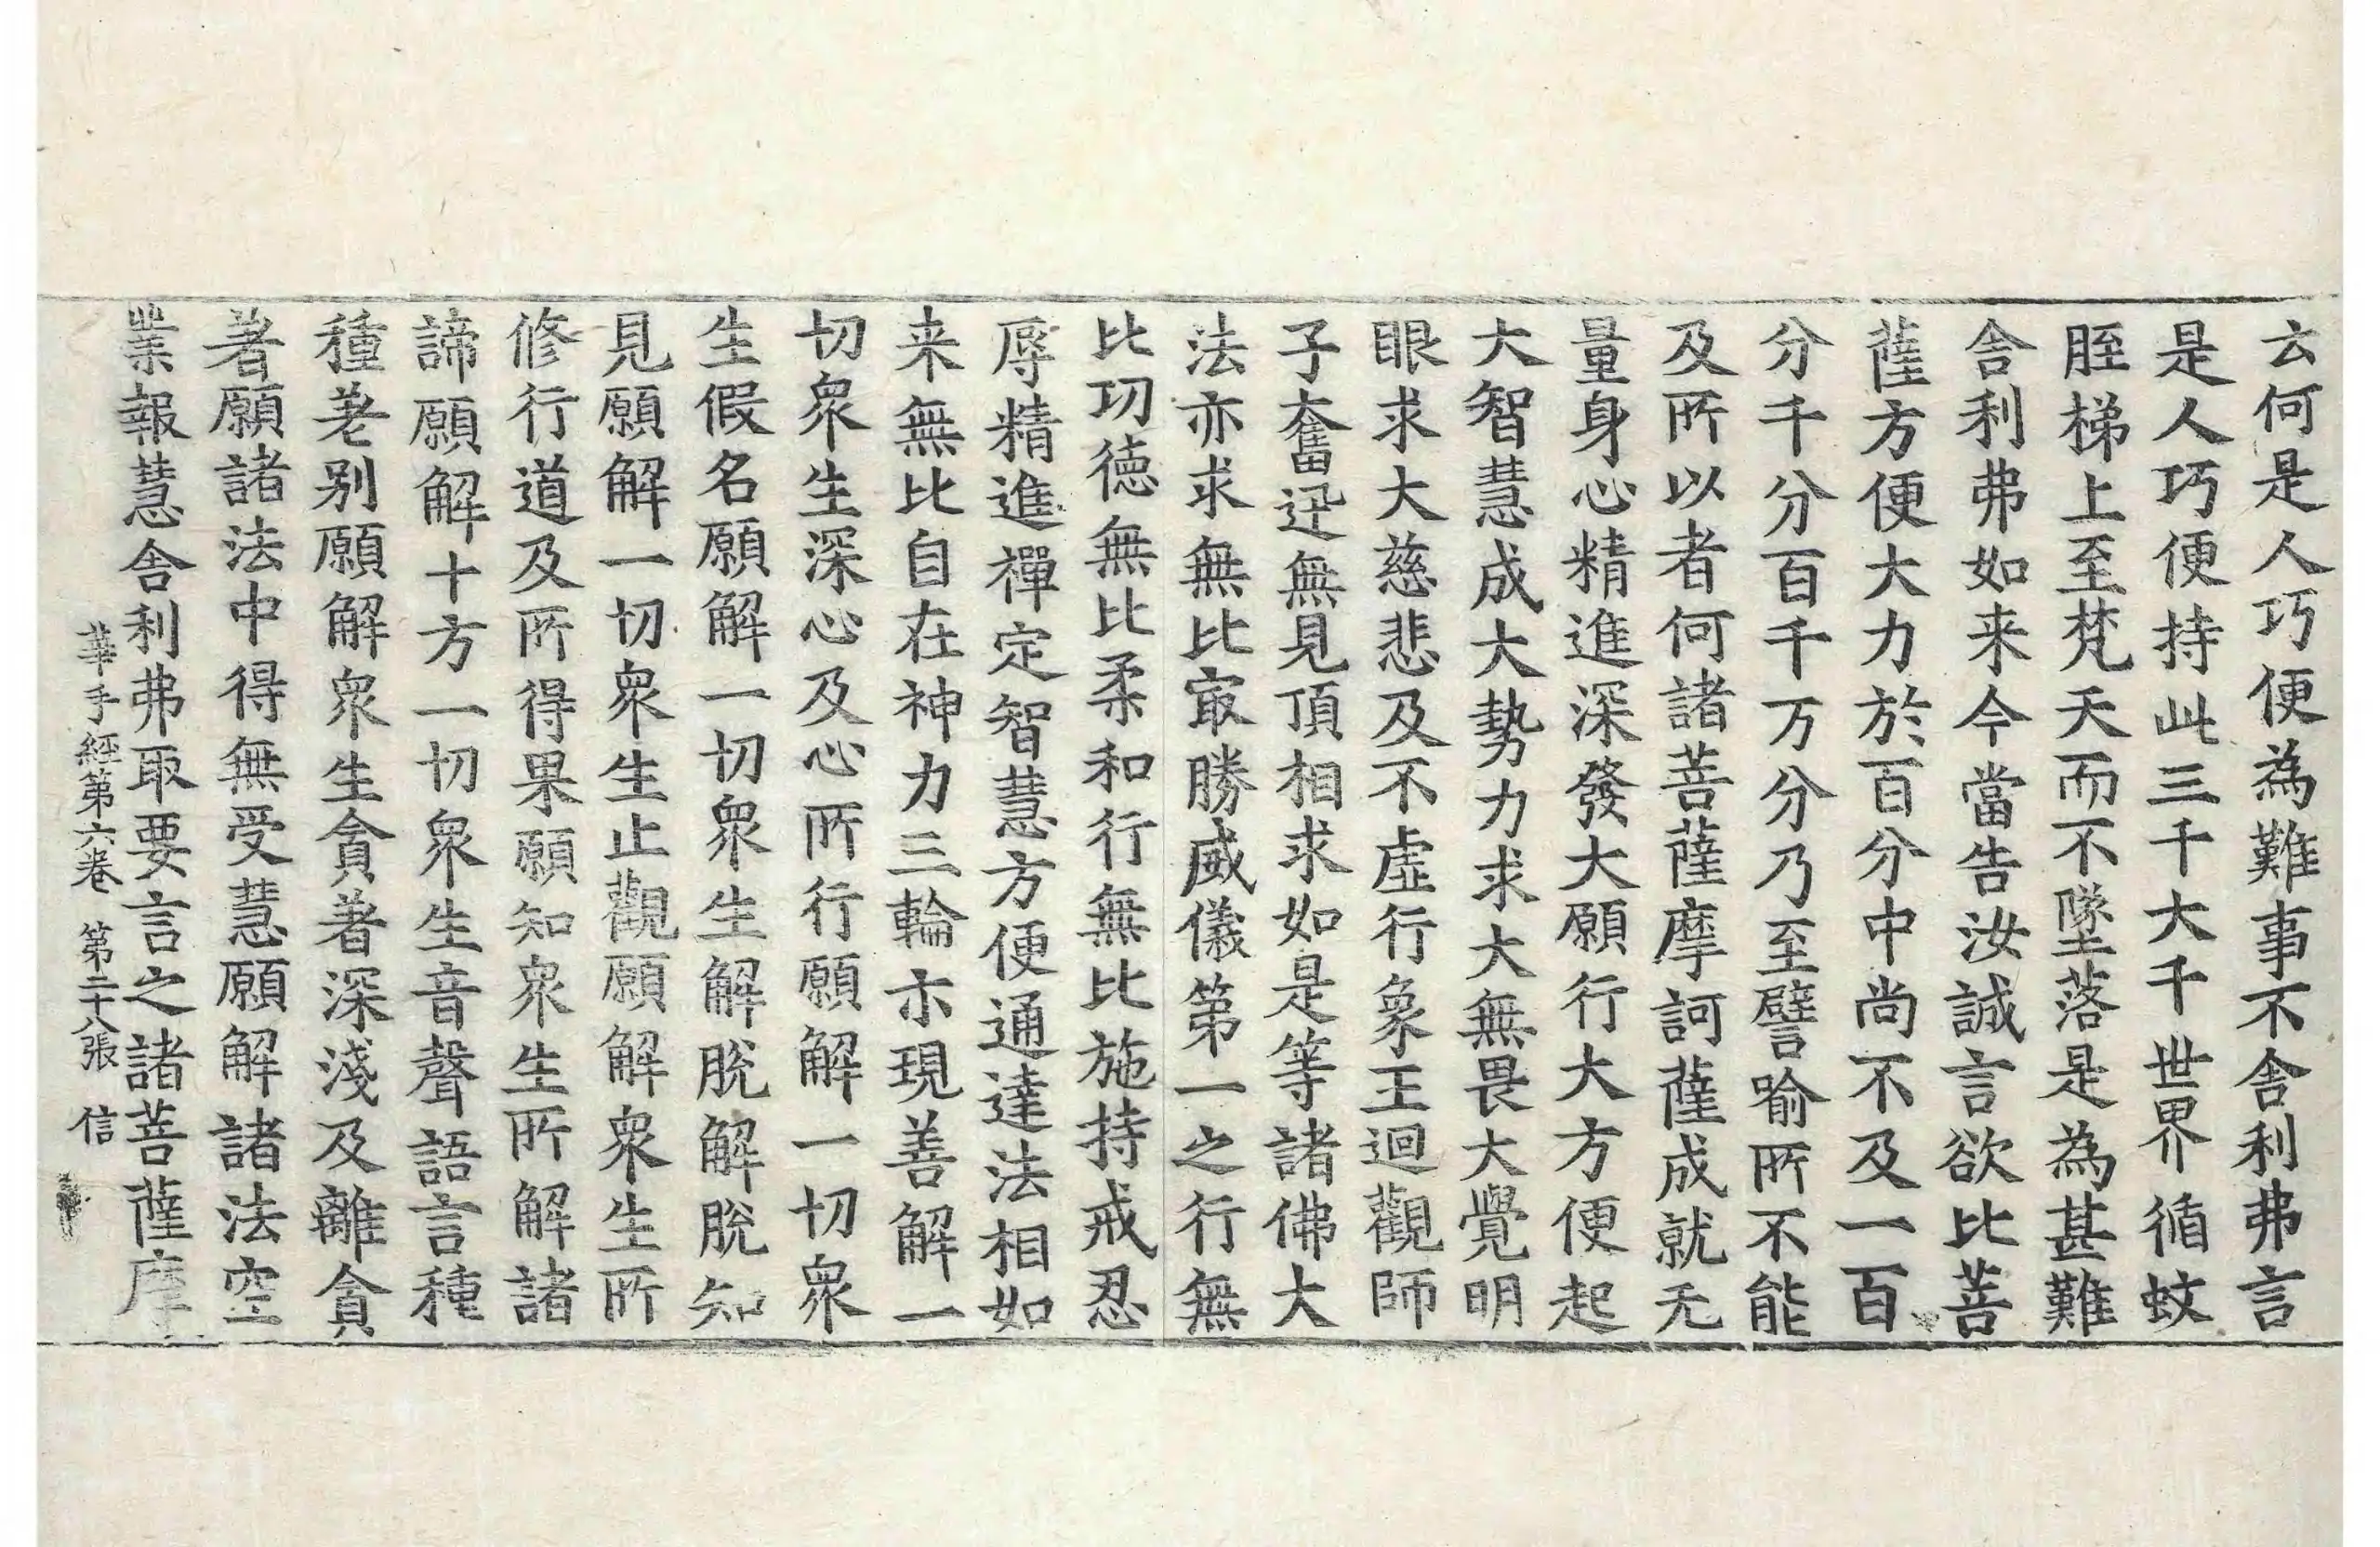 云何是人巧便為難事不舍利弗言
是人巧便持此三千大千世界循蚊
脛梯上至梵天而不墜落是為甚難
舍利弗如来今當告汝誠言欲比菩
薩方便大力於百分中尚不及一百
分千分百千万分乃至譬喻所不能
及所以者何諸菩薩摩訶薩成就无
量身心精進深發大願行大方便起
大智慧成大勢力求大無畏大覺明
眼求大慈悲及不虛行象王迴觀師
子奮迅無見頂相求如是等諸佛大
法亦求無比㝡勝威儀第一之行無
比功徳無比柔和行無比施持戒忍
辱精進禪定智慧方便通達法相如
来無比自在神力三輪示現善解一
切眾生深心及心所行願解一切眾
生假名願解一切眾生解脫解脫知
見願解一切眾生止觀願解眾生所
修行道及所得果願知眾生所解諸
諦願解十方一切眾生音聲語言種
種差別願解眾生貪著深淺及離貪
著願諸法中得無受慧願解諸法空
業報慧舍利弗取要言之諸菩薩摩
華手經第六卷 第二十八張 信